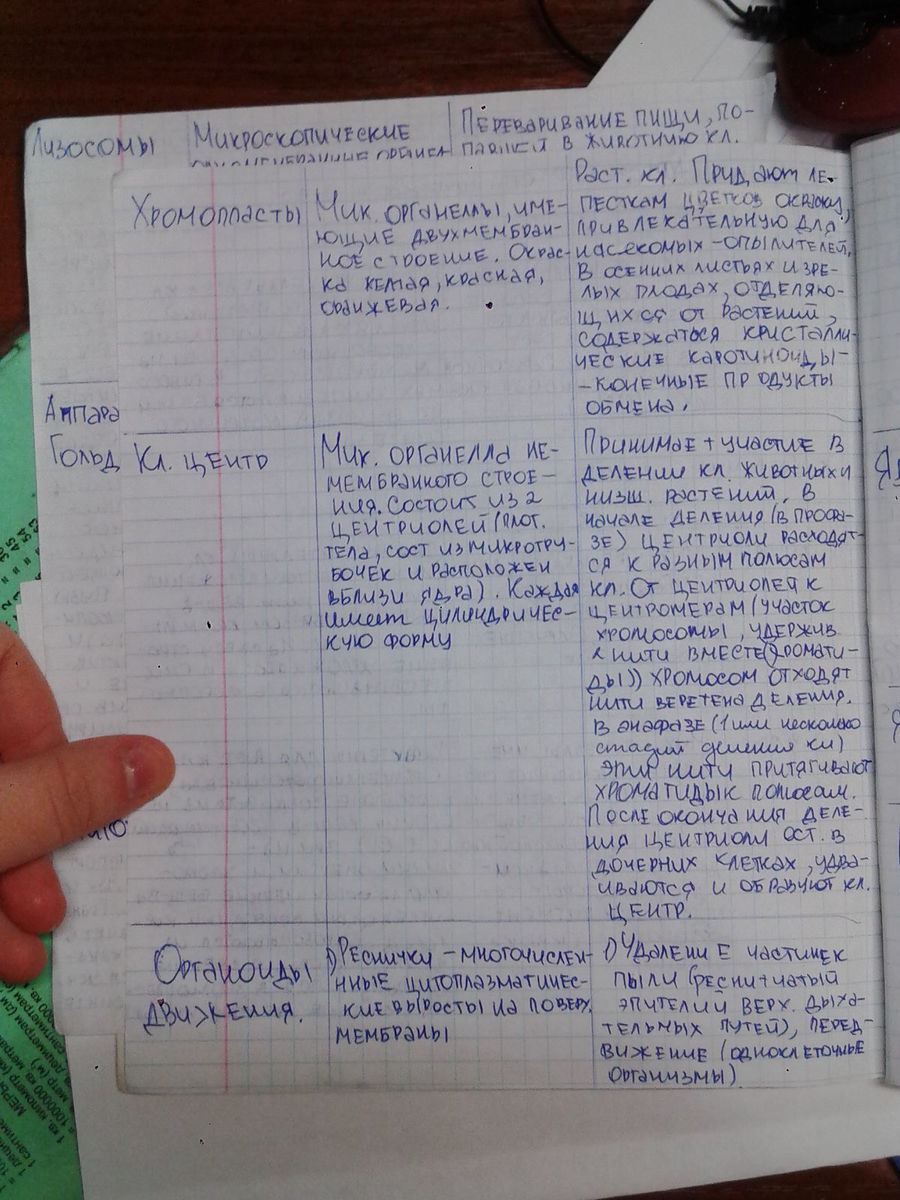 Лизосомы
Микроскопические
Переваривание пищи, по-
в животную кл.
Хромопласты
Мик. органеллы, име-
ющие двухмембран-
ное строение. Окрас-
ка желтая, красная,
оранжевая.
Раст. кл. Придают ле-
песткам цветков окраску,
привлекательную для
насекомых-опылителей.
В осенних листьях и зре-
лых плодах, отделяю-
щихся от растений,
содержаться кристалли-
ческие каротиноиды-
-конечные продукты
обмена.
Аппара
Гольд
Кл. центр
Мик. органелла не-
мембранного строе-
ния. Состоит из 2
центриолей (плот.
тела, сост из микротру-
бочек и расположен
вблизи ядра). Каждая
имеет цилиндричес-
кую форму
Принимает участие в
делении кл. животных и
низш. растений. В
начале деления (в профа-
зе) центриоли расходят-
ся к разным полюсам
кл. От центриолей к
центромерам (участок
хромосомы, удержив
нити вместе (хромати-
ды)) хромосом отходят
нити веретена деления.
В анафазе (1 или несколько
стадий деления кл)
эти нити притягивают
хроматиды к полюсам.
После окончания деле-
ния центриоли ост. в
дочерних клетках, удва-
иваются и образуют кл.
центр.
Органоиды
движения.
1) Реснички - многочислен-
ные цитоплазматичес-
кие выросты на поверх.
мембраны
1) Удаление частичек
пыли (реснитчатый
эпителий верх. дыха-
тельных путей), перед-
вижение (одноклеточные
организмы)